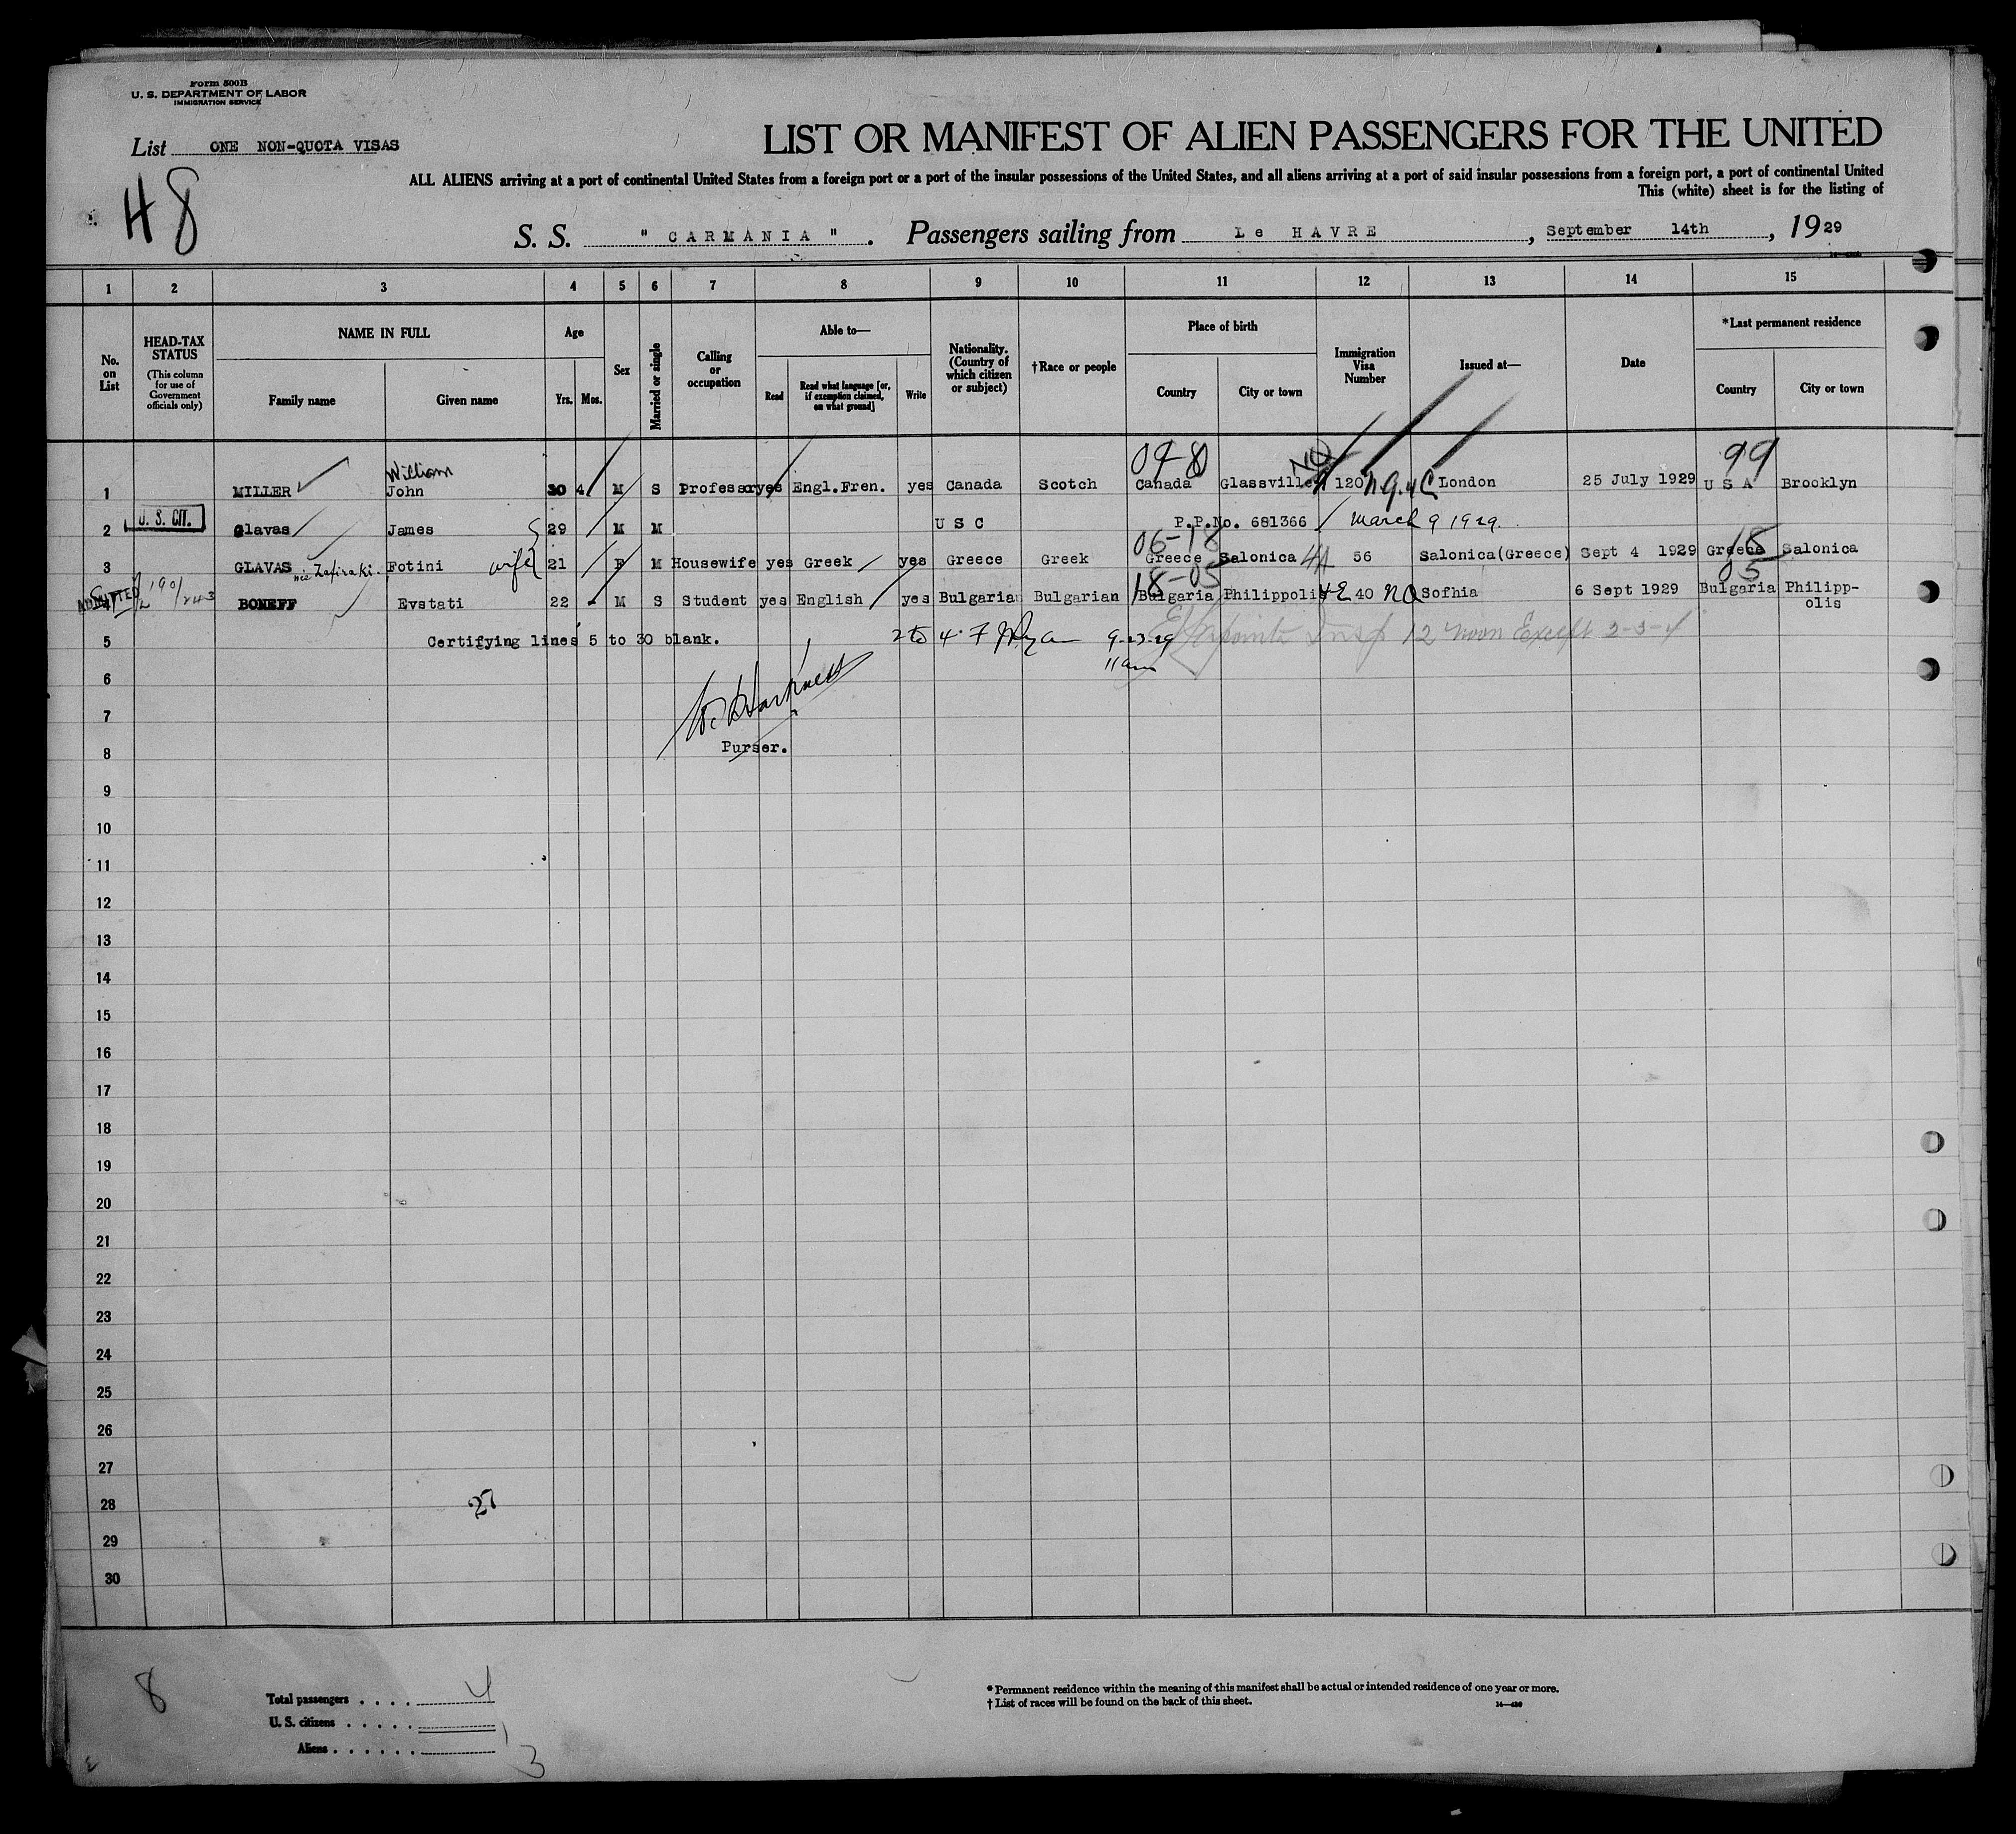 Form 500B
U. S. DEPARTMENT OF LABOR
IMMIGRATION SERVICE
List ONE NON-QUOTA VISAS
48
LIST OR MANIFEST OF ALIEN PASSENGERS FOR THE UNITED
ALL ALIENS arriving at a port of continental United States from a foreign port or a port of the insular possessions of the United States, and all aliens arriving at a port of said insular possessions from a foreign port, a port of continental United
This (white) sheet is for the listing of
S. S. " CARMANIA ". Passengers sailing from Le HAVRE, September 14th, 1929
1 2 3 4 5 6 7 8 9 10 11 12 13 14 15
No. on List
HEAD-TAX STATUS
(This column for use of Government officials only)
NAME IN FULL
Family name
Given name
Age
Yrs. Mos.
Sex
Married or single
Calling or occupation
Able to—
Read
Read what language [or, if exemption claimed, on what ground]
Write
Nationality. (Country of which citizen or subject)
†Race or people
Place of birth
Country
City or town
Immigration Visa Number
Issued at—
Date
*Last permanent residence
Country
City or town
William 09-8 NQ 99
1 MILLER John 30 4 M S Professor yes Engl.Fren. yes Canada Scotch Canada Glassville 120 London 25 July 1929 U S A Brooklyn
U. S. CIT.
2 Glavas James 29 M M U S C P.P.No. 681366 March 9 1929.
06-18 18
3 GLAVAS née Zafiraki Fotini wife 21 F M Housewife yes Greek yes Greece Greek Greece Salonica 4A 56 Salonica(Greece) Sept 4 1929 Greece Salonica
ADMITTED 18-05 05
4 BONEFF Evstati 22 - M S Student yes English yes Bulgaria Bulgarian Bulgaria Philippolis 4E 40 NQ Sofhia 6 Sept 1929 Bulgaria Philipp-
olis
5 Certifying lines 5 to 30 blank. 2 to 4 9-23-29 Insp 12 noon Except 2-3-4
11am
6
7
Purser.
8
9
10
11
12
13
14
15
16
17
18
19
20
21
22
23
24
25
26
27
28 27
29
30
8
Total passengers . . . . 4
U. S. citizens . . . . .
Aliens . . . . . . 3
* Permanent residence within the meaning of this manifest shall be actual or intended residence of one year or more.
† List of races will be found on the back of this sheet.